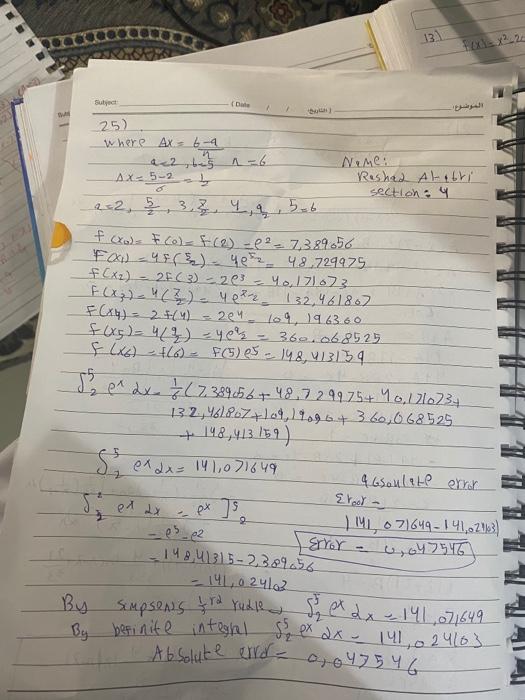 13)
f(x)=x²-2
Subject:
(Date / / التاريخ)
الموضوع:
25)
where Δx = b-a/n
a=2, b=5 n=6
Name:
Δx = 5-2/6 = 1/2
Rashad Al-abri
section: 4
a=2, 5/2, 3, 7/2, 4, 9/2, 5=b
f(x0) = F(a) = F(2) = e² = 7,389056
F(x1) = 4F(5/2) = 4e^5/2 = 48,729975
f(x2) = 2F(3) = 2e³ = 40,171073
F(x3) = 4(7/2) = 4e^7/2 = 132,461807
F(x4) = 2f(4) = 2e4 = 109,196300
F(x5) = 4(9/2) = 4e^9/2 = 360.068525
F(x6) = f(b) = F(5) e5 = 148,413159
∫₂⁵ eˣ dx = 1/6 (7.389056 + 48,729975 + 40,171073+
132,461807 + 109,19630 + 360,068525
+ 148,413159)
∫₂⁵ eˣ dx = 141,071649
absoulate error
Error =
∫₂⁵ eˣ dx = eˣ ]₂⁵
|141,071649 - 141,024103|
= e5 - e2
Error = 0,047546
= 148,41315 - 7,389056
= 141,024103
By Simpson's 1/3 rd rudle ∫₂⁵ eˣ dx = 141,071649
By Definite integral ∫₂⁵ eˣ dx = 141,024103
Absolute error = 0,047546